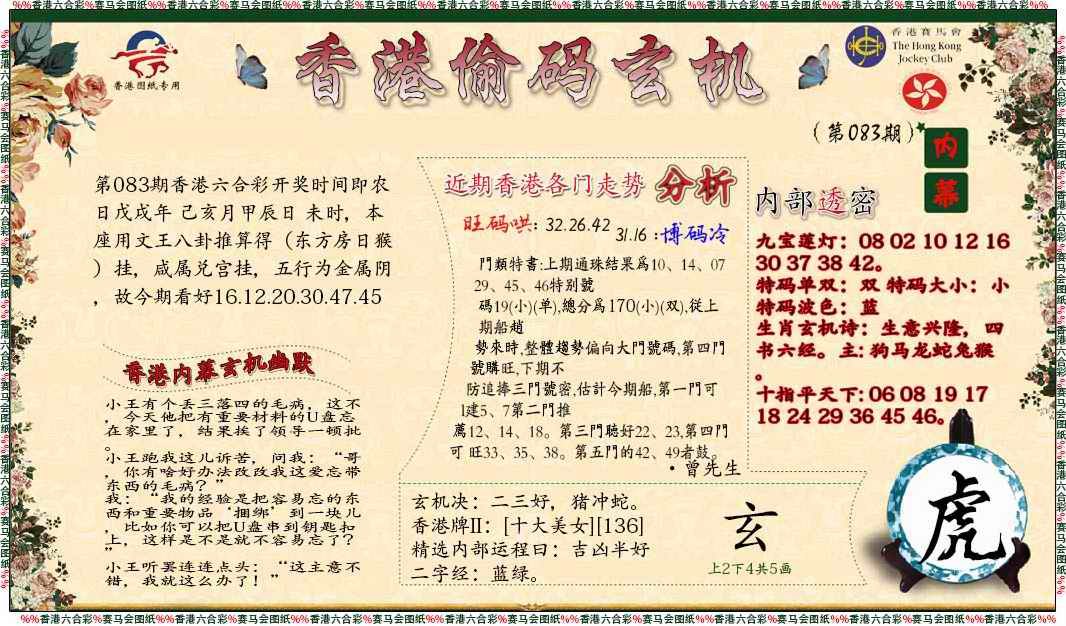 %%香港六合彩%赛马会图纸%%香港六合彩%赛马会图纸%%香港六合彩%赛马会图纸%%香港六合彩%赛马会图纸%%香港六合彩%赛马会图纸%%香港六合彩%赛马会图纸%%香港六合彩%%
香港图纸专用
香港偷码玄机
香港賽馬會
The Hong Kong
Jockey Club
(第083期)
内
幕
第083期香港六合彩开奖时间即农
日戊戌年 己亥月甲辰日 未时，本
座用文王八卦推算得（东方房日猴
）挂，咸属兑宫挂，五行为金属阴
，故今期看好16.12.20.30.47.45
近期香港各门走势 分析
旺码哄: 32.26.42
31.16 :博码冷
門類特書:上期通珠結果爲10、14、07
29、45、46特别號
碼19(小)(单),總分爲170(小)(双),従上
期船趙
勢來時,整體趨勢偏向大門號碼,第四門
號購旺,下期不
防追捧三門號密,估計今期船,第一門可
1建5、7第二門推
薦12、14、18。第三門聽好22、23,第四門
可 旺33、35、38。第五門的42、49者鼓。
·曾先生
内部透密
九宝莲灯：08 02 10 12 16
30 37 38 42。
特码单双：双 特码大小：小
特码波色：蓝
生肖玄机诗：生意兴隆，四
书六经。主: 狗马龙蛇兔猴
。
十指平天下: 06 08 19 17
18 24 29 36 45 46。
香港内幕玄机幽默
小王有个丢三落四的毛病，这不
，今天他把有重要材料的U盘忘
在家里了，结果挨了领导一顿批
。
小王跑我这儿诉苦，问我：“哥
，你有啥好办法改改我这爱忘带
东西的毛病？”
我：“我的经验是把容易忘的东
西和重要物品‘捆绑’到一块儿
，比如你可以把U盘串到钥匙扣
上，这样是不是就不容易忘了？
”
小王听罢连连点头：“这主意不
错，我就这么办了！”
玄机决：二三好，猪冲蛇。
香港牌II：[十大美女][136]
精选内部运程曰：吉凶半好
二字经：蓝绿。
玄
上2下4共5画
虎
%%香港六合彩%赛马会图纸%%香港六合彩%赛马会图纸%%香港六合彩%赛马会图纸%%香港六合彩%赛马会图纸%%香港六合彩%赛马会图纸%%香港六合彩%赛马会图纸%%香港六合彩%%